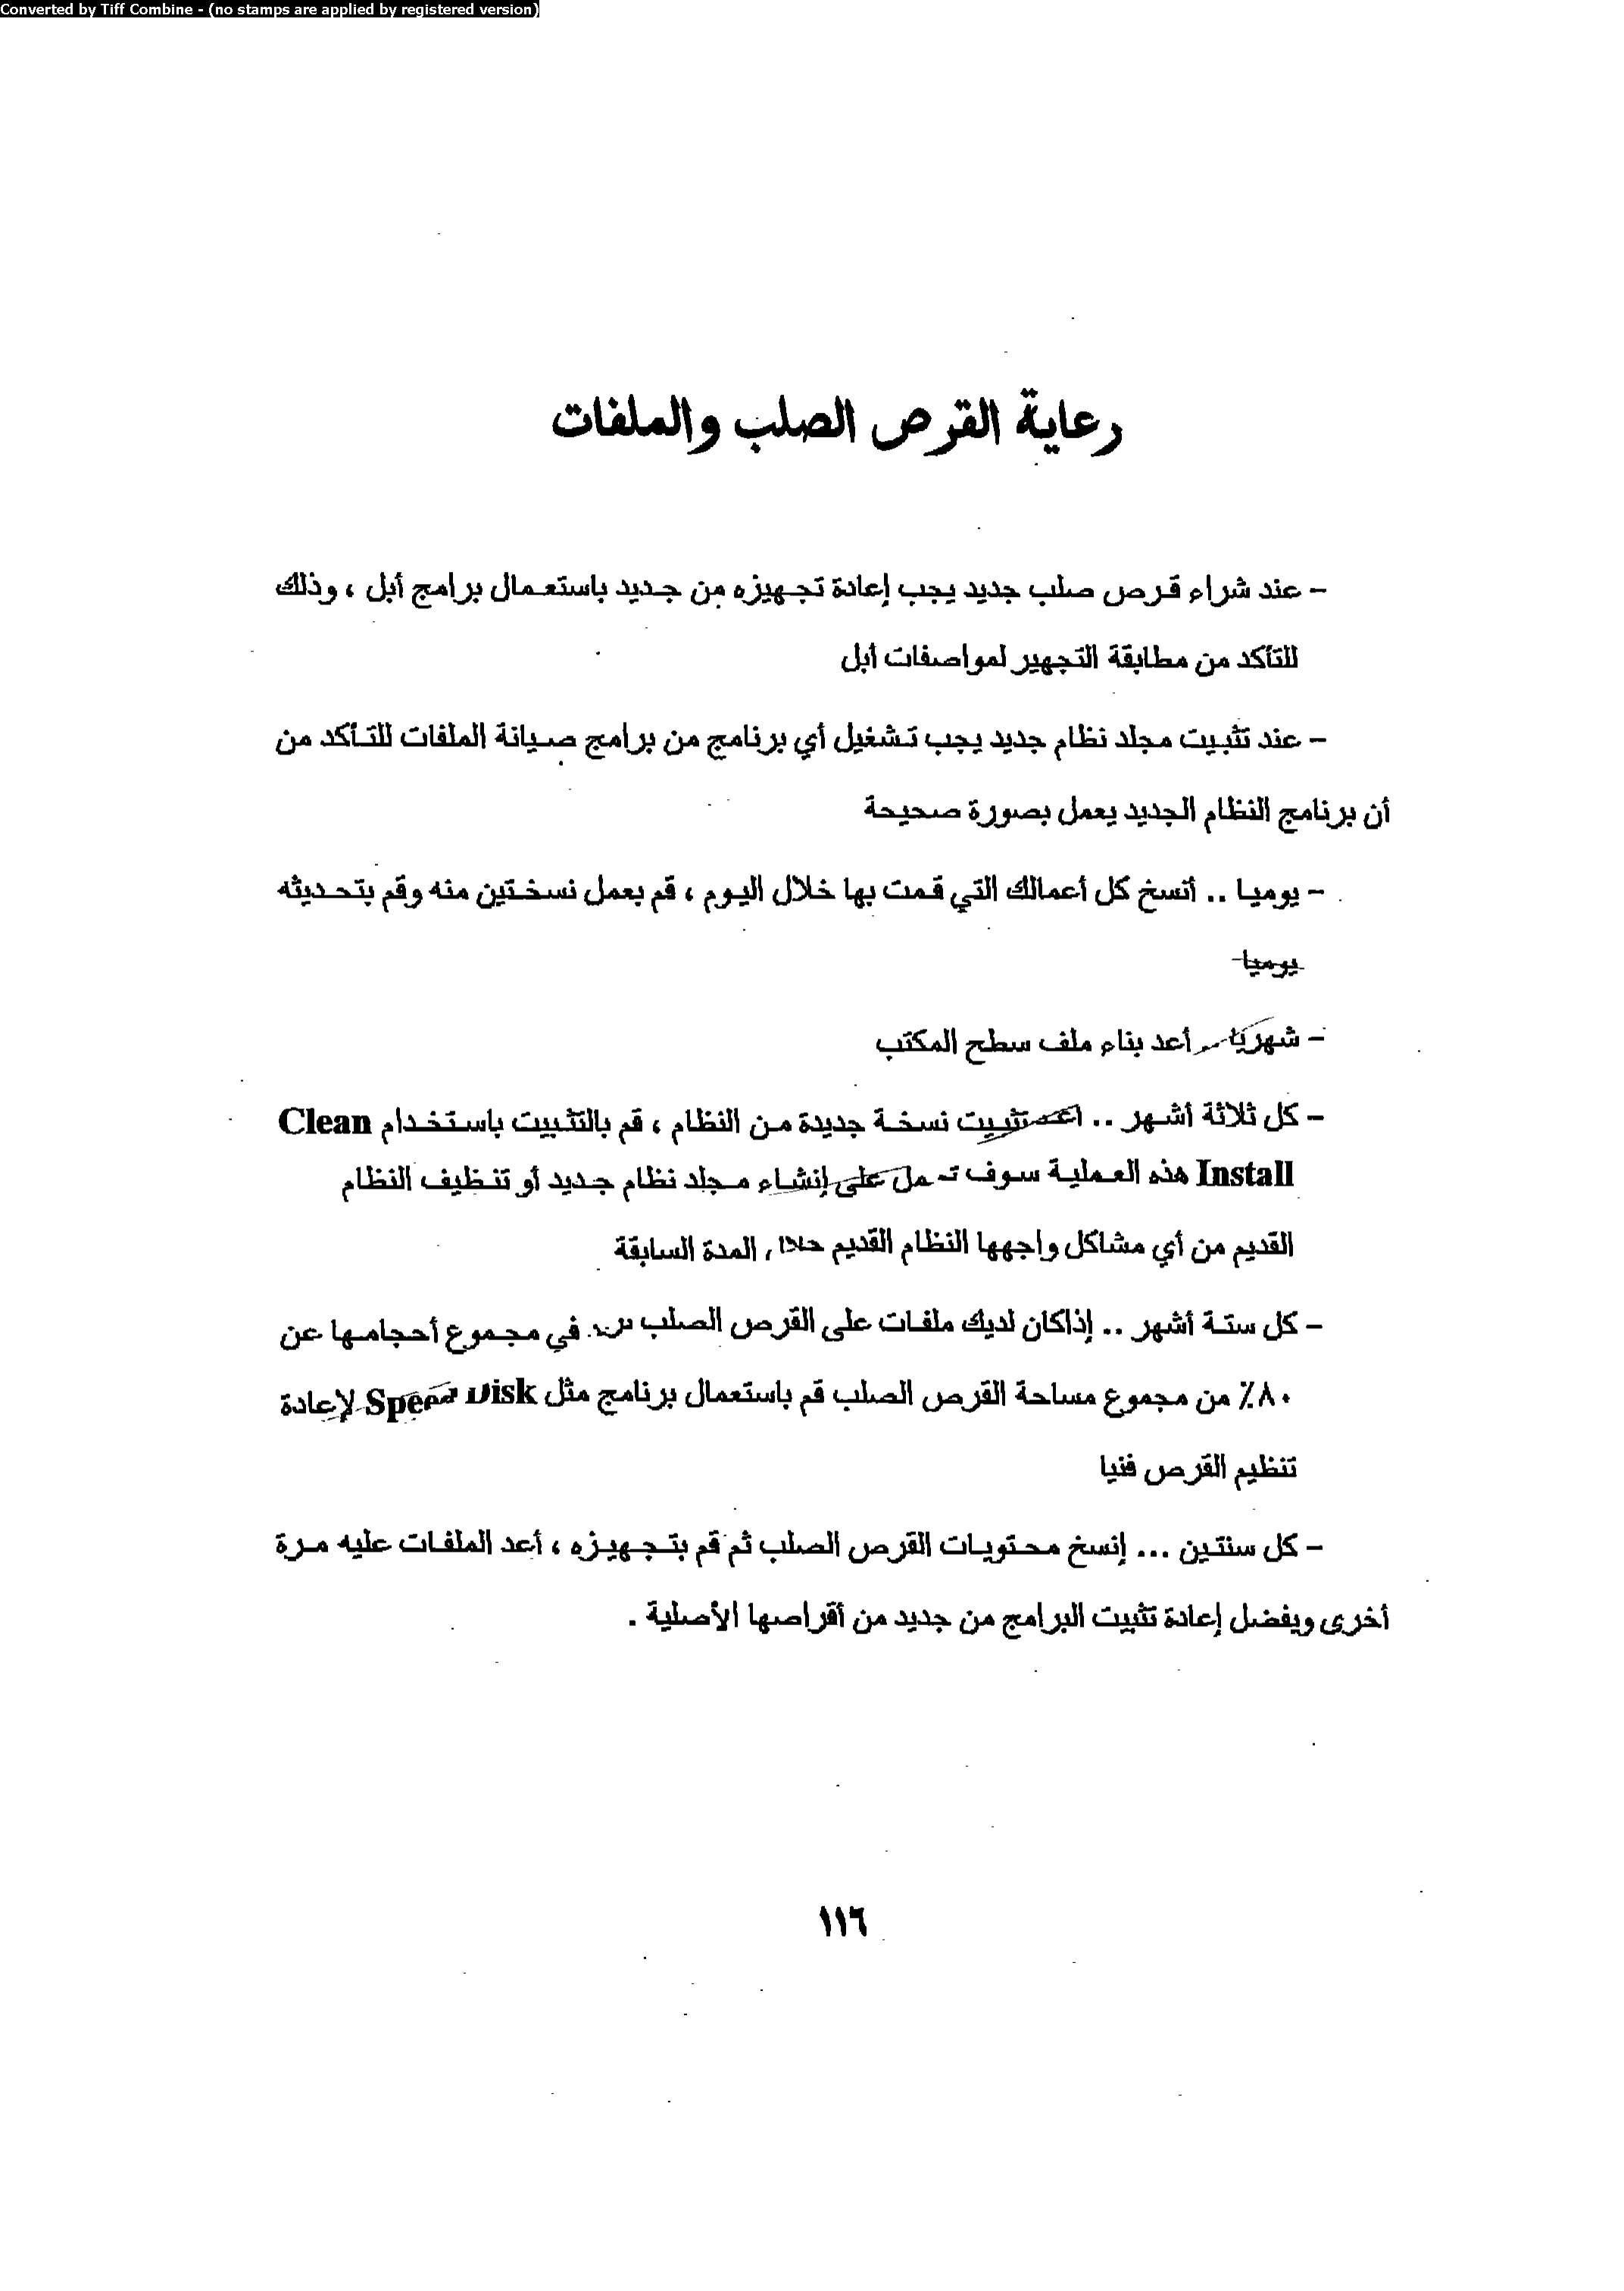 Converted by Tiff Combine - (no stamps are applied by registered version)
رعاية القرص الصلب والملفات
– عند شراء قرص صلب جديد يجب إعادة تجهيزه من جديد باستعمال برامج أبل ، وذلك
للتأكد من مطابقة التجهير لمواصفات أبل
– عند تثبيت مجلد نظام جديد يجب تشغيل أي برنامج من برامج صيانة الملفات للتأكد من
أن برنامج النظام الجديد يعمل بصورة صحيحة
– يوميا .. أنسخ كل أعمالك التي قمت بها خلال اليوم ، قم بعمل نسختين منه وقم بتحديثه
يوميا
– شهريا .. أعد بناء ملف سطح المكتب
– كل ثلاثة أشهر .. تثبيت نسخة جديدة من النظام ، قم بالتثبيت باستخدام Clean
Install هذه العملية سوف على إنشاء مجلد نظام جديد أو تنظيف النظام
القديم من أي مشاكل واجهها النظام القديم المدة السابقة
– كل ستة أشهر .. إذاكان لديك ملفات على القرص الصلب في مجموع أحجامها عن
٨٠٪ من مجموع مساحة القرص الصلب قم باستعمال برنامج مثل Speed Disk لإعادة
تنظيم القرص فنيا
– كل سنتين ... إنسخ محتويات القرص الصلب ثم قم بتجهيزه ، أعد الملفات عليه مرة
أخرى ويفضل إعادة تثبيت البرامج من جديد من أقراصها الأصلية .
١١٦